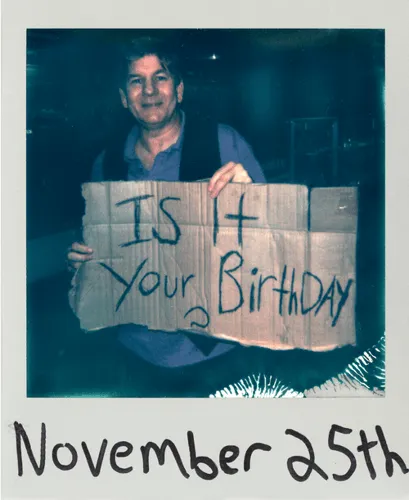 IS It
Your BirthDAY
?
November 25th